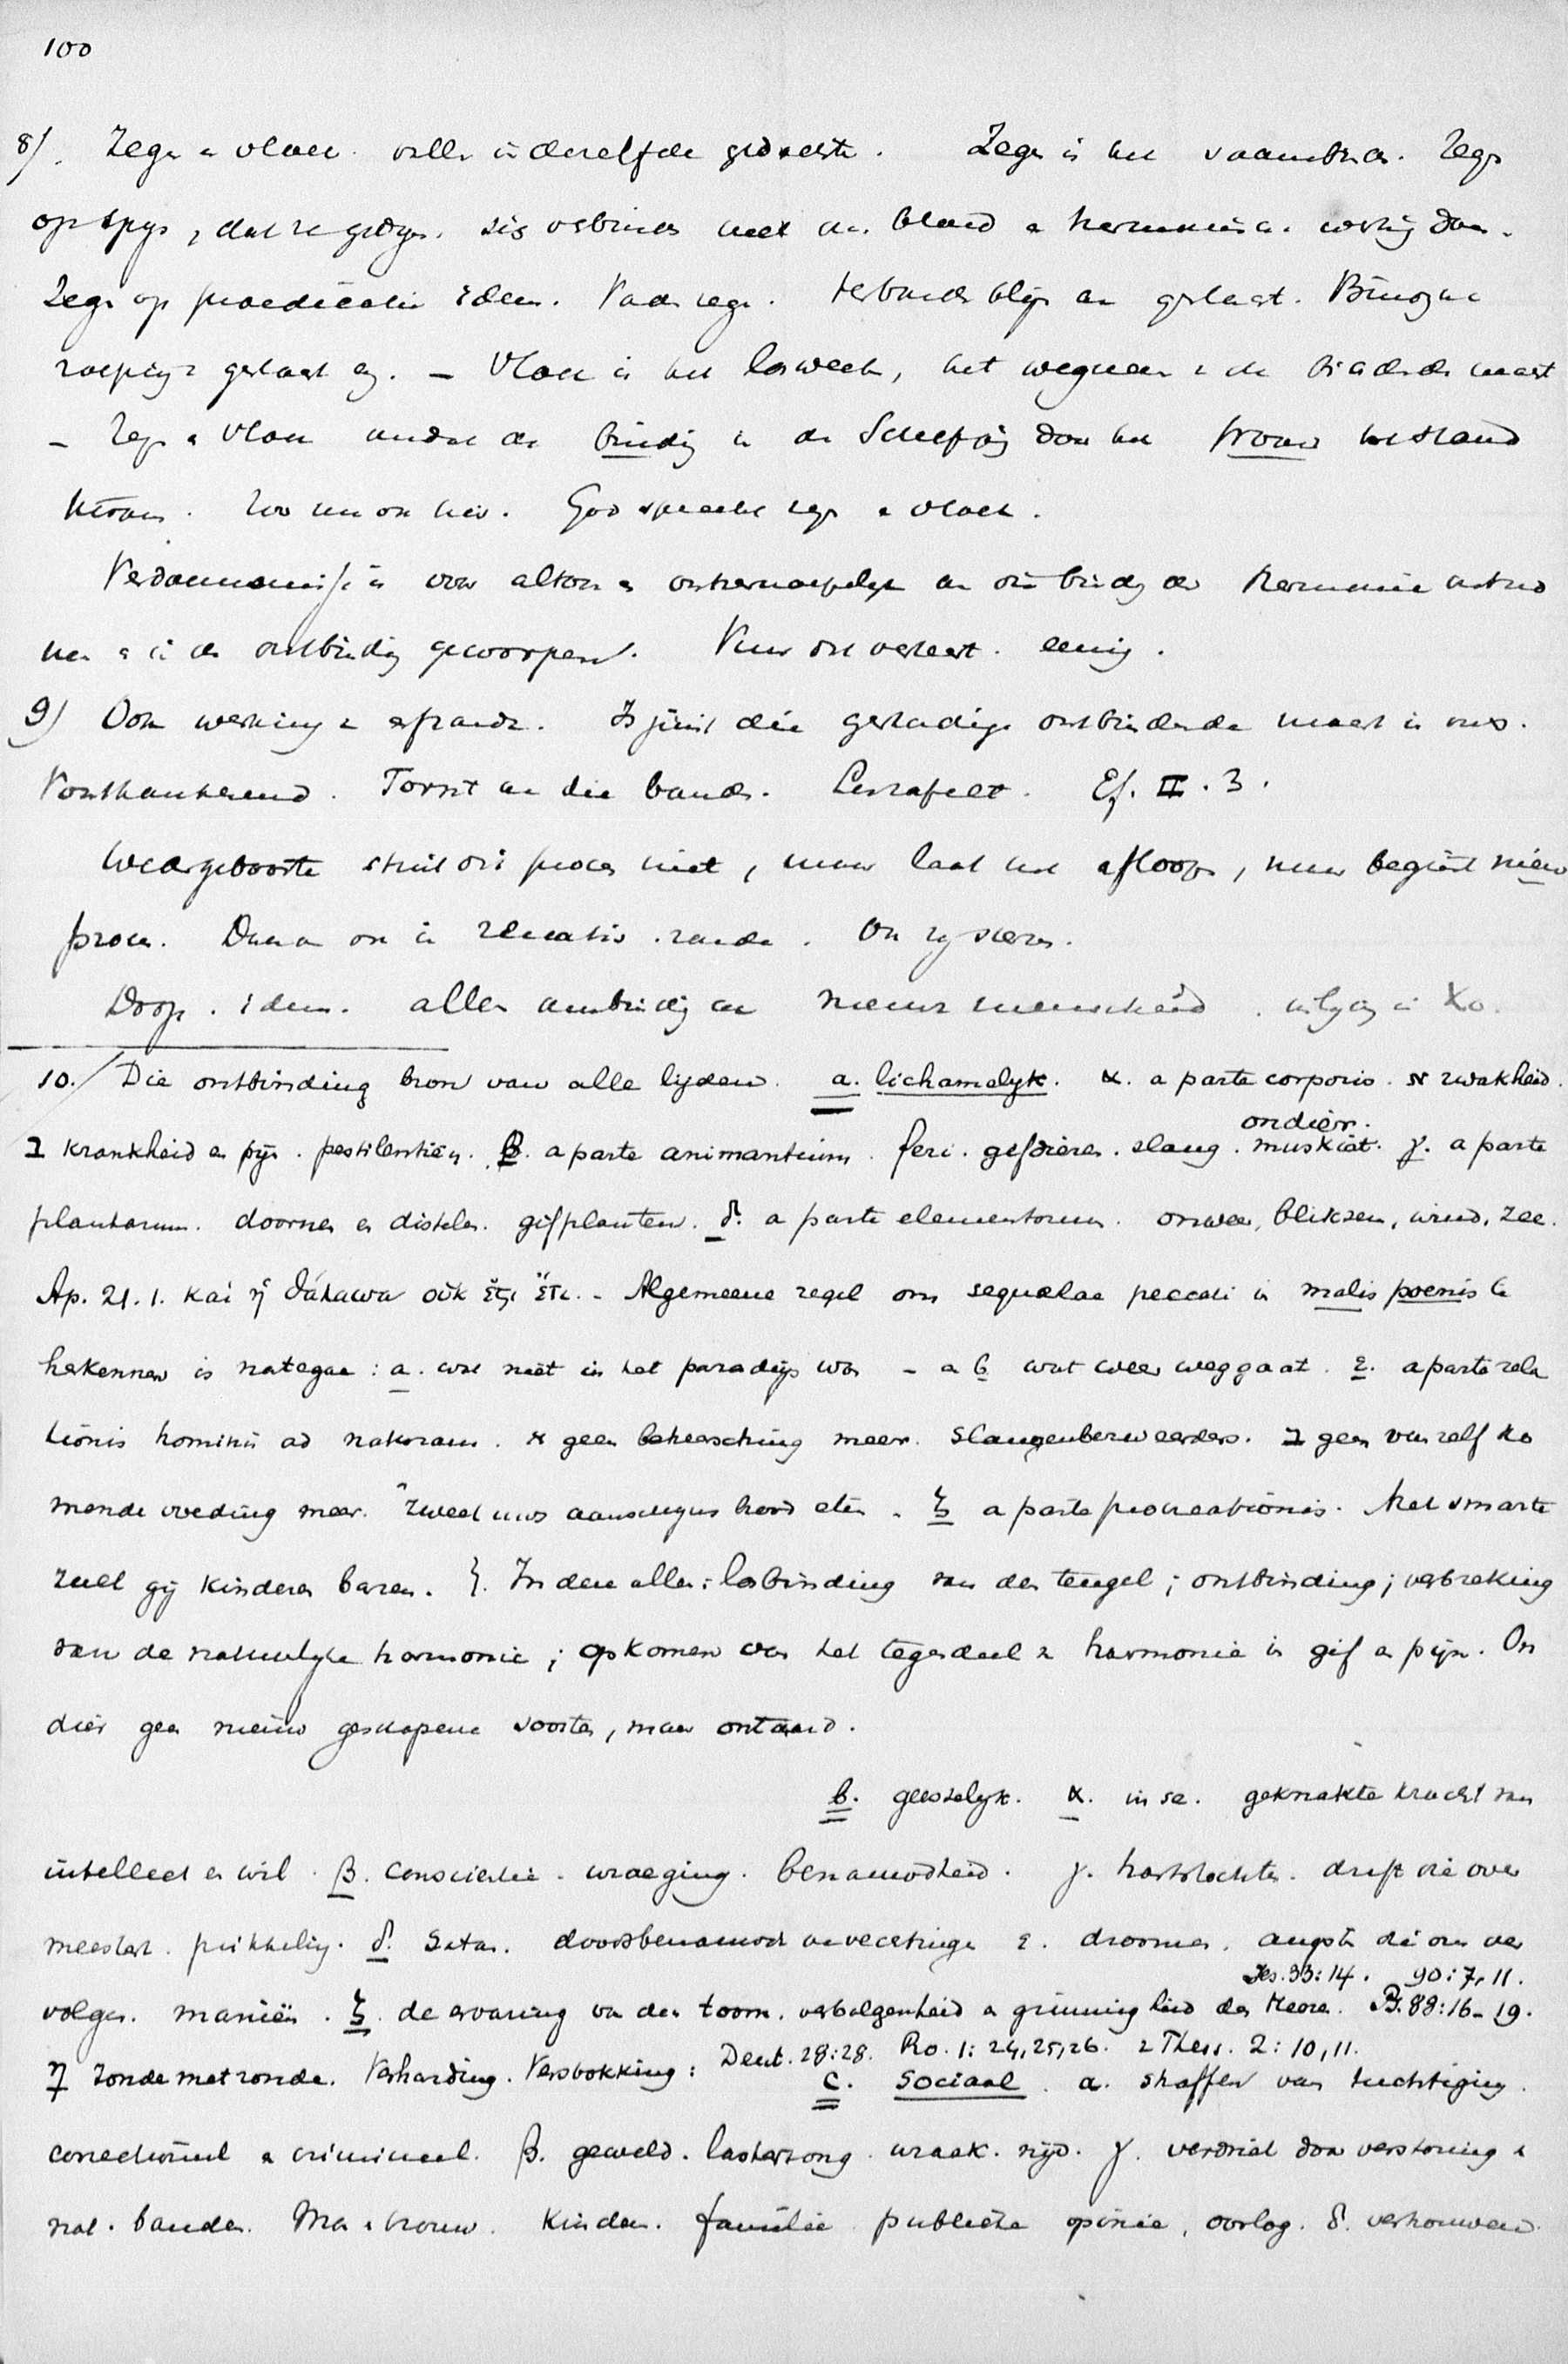 100
8/. Zegen en vloek. vallen in dezelfde gedachte. Zegen is het saambinden. Zegen
op spijs, dat ze gedije. zich verbinde met den bloed en harmonisch. werking doen.
Zegen op praedicatie idem. Vaderzegen. verband blijve aan geslacht.
roeping geslacht. – Vloek is het losweeken, het wegnemen der bindende macht
– Zegen en vloek omdat de binding in de Schepping door het woord tot stand
kwam. Zoo nu ook hier. God spreekt zegen en vloek.
Verdoemenis is voor altoos en onherroepelijk aan die binding der harmonie
en in de ontbinding geworpen. Vuur dat verteert. eeuwig.
9) Ook werking erfzonde. Is juist die gestadige ontbindende macht in ons.
Voortkankerend. Tornt aan die banden. Ef. II. 3.
Wedergeboorte stuit dit proces niet, maar laat het afloopen, maar begint nieuw
proces. Daarom ook in zonde. En zij sterven.
Doop. idem. alles aanbinding aan nieuwe menschheid. in Xo.
10./ Die ontbinding bron van alle lijden. a. lichamelyk. α. a parte corporis. א zwakheid.
ondier.
ב krankheid en pijn. pestilentiën. β. a parte animantium. feri. gifdieren. slang. muskiet. γ. a parte
plantarum. doornen en distelen. gifplanten. δ. a parte elementorum. onweer, bliksem, wind, zee.
Ap. 21.1. καὶ ἡ θάλασσα οὐκ ἔστι ἔτι. – Algemeene regel om sequelae peccati in malis poenis te
herkennen is nategaan: a. wat niet in het paradijs was – en b wat weer weggaat. ε. a parte rela
tionis hominis ad naturam. א geen beheersching meer. Slangenbezweerders. ב geen van zelf ko
mende voeding meer. "zweet uws aanschijns brood eten. ζ a parte procreationis. Met smarte
zult gij kinderen baren. In dat alles: losbinding van den teugel; ontbinding; verbreking
van de natuurlyke harmonie; opkomen van het tegendeel v harmonie in gif en pijn. On
dier geen nieuw geschapene soorten, maar ontaard.
b. geestelyk. α. in se. geknakte kracht van
intellect en wil. β. conscientie. wroeging. benauwdheid. γ. hartstochten. drift die over
meestert. prikkeling. δ. Satan. doodsbenauwd aanvechtingen ε. droomen. angsten die ons ver
Jes. 33:14. 90:7, 11.
volgen. maniën. ζ. de ervaring van den toorn. verbolgenheid en grimmigheid des Heeren. Ps. 88:16–19.
η zonde met zonde. Verharding. Verstokking: Deut. 28:28. Ro. 1:24, 25, 26. 2 Thess. 2:10, 11.
c. Sociaal. a. straffen van tuchtiging.
correctioneel en crimineel. β. geweld. lastertong. wraak. nijd. γ. verdriet door verstoring v
nat. banden. Man en vrouw. Kinderen. familie publieke opinie, oorlog. δ.